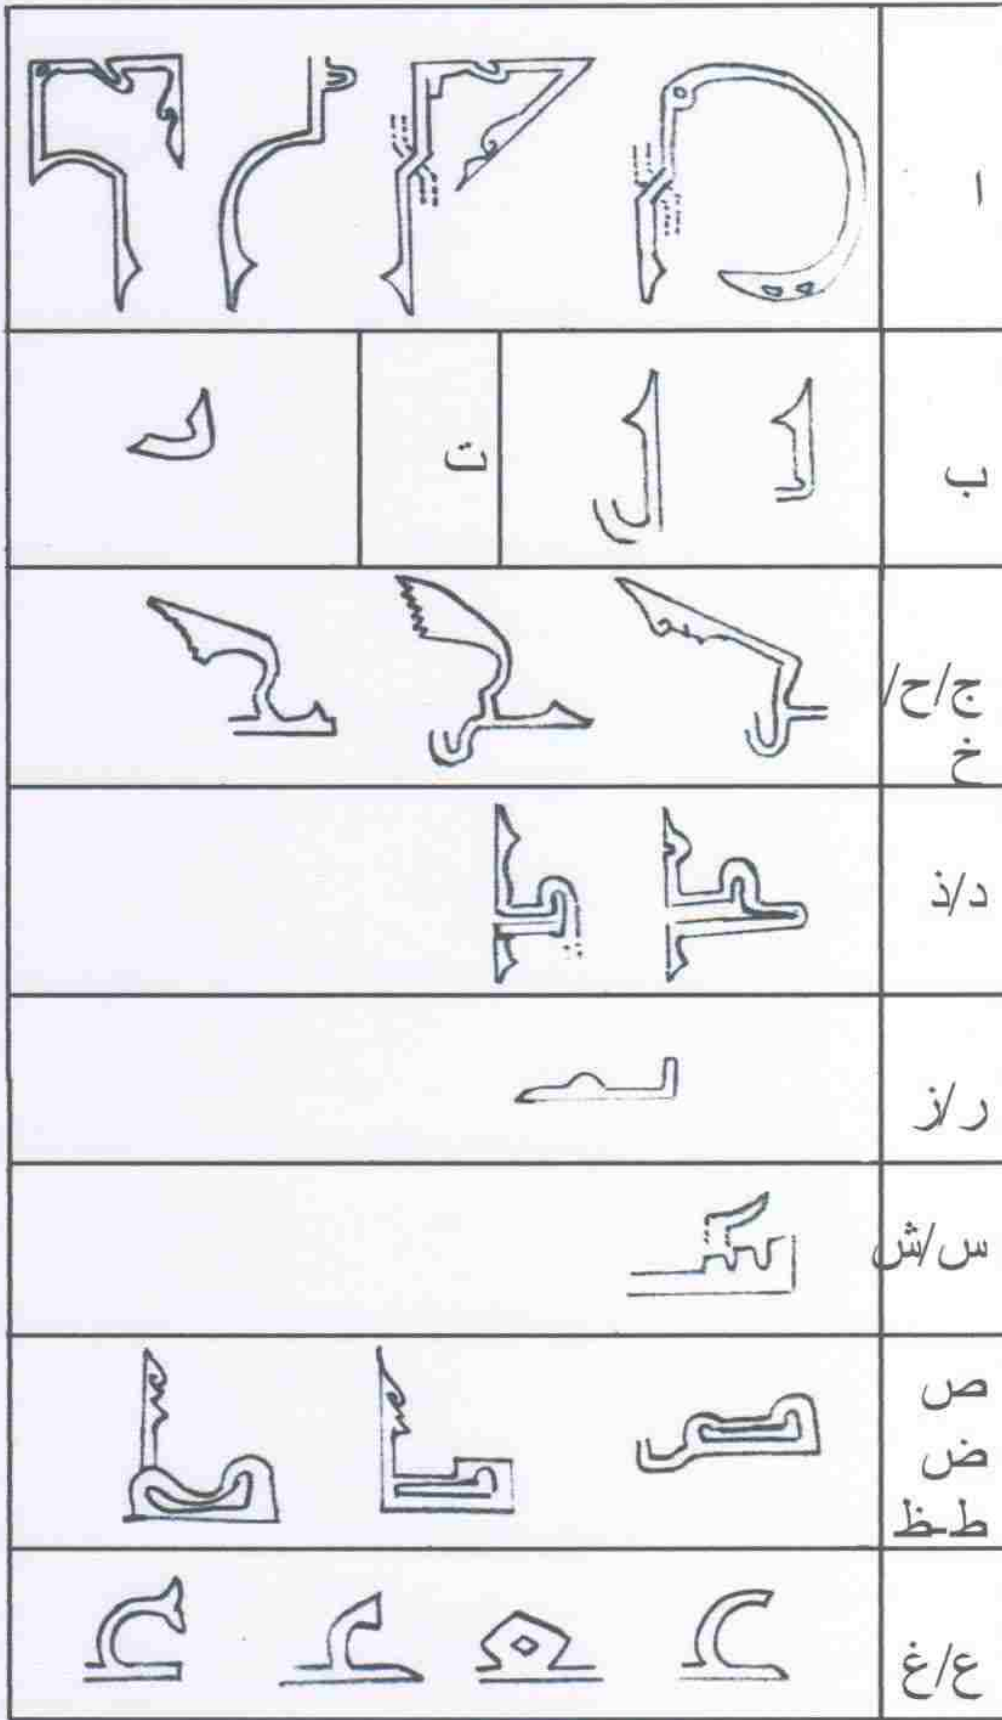 ا
ب
ت
ج/ح/
خ
د/ذ
ر/ز
س/ش
ص
ض
ط-ظ
ع/غ